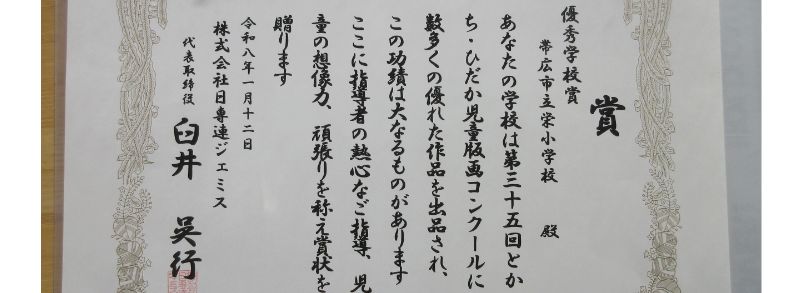 賞
優秀学校賞
帯広市立栄小学校　殿
あなたの学校は第三十五回とか
ち・ひだか児童版画コンクールに
数多くの優れた作品を出品され、
この功績は大なるものがあります
ここに指導者の熱心なご指導、児
童の想像力、頑張りを称え賞状を
贈ります
令和八年一月十二日
株式会社日専連ジェミス
代表取締役
臼井　呉行